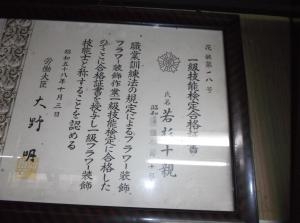 花装第一八号
一級技能検定合格証書
氏名 若杉十親
昭和
職業訓練法の規定によるフラワー装飾
フラワー装飾作業一級技能検定に合格した
のでここに合格証書を授与し一級フラワー装飾
技能士と称することを認める
昭和五十八年十月三日
労働大臣 大野明